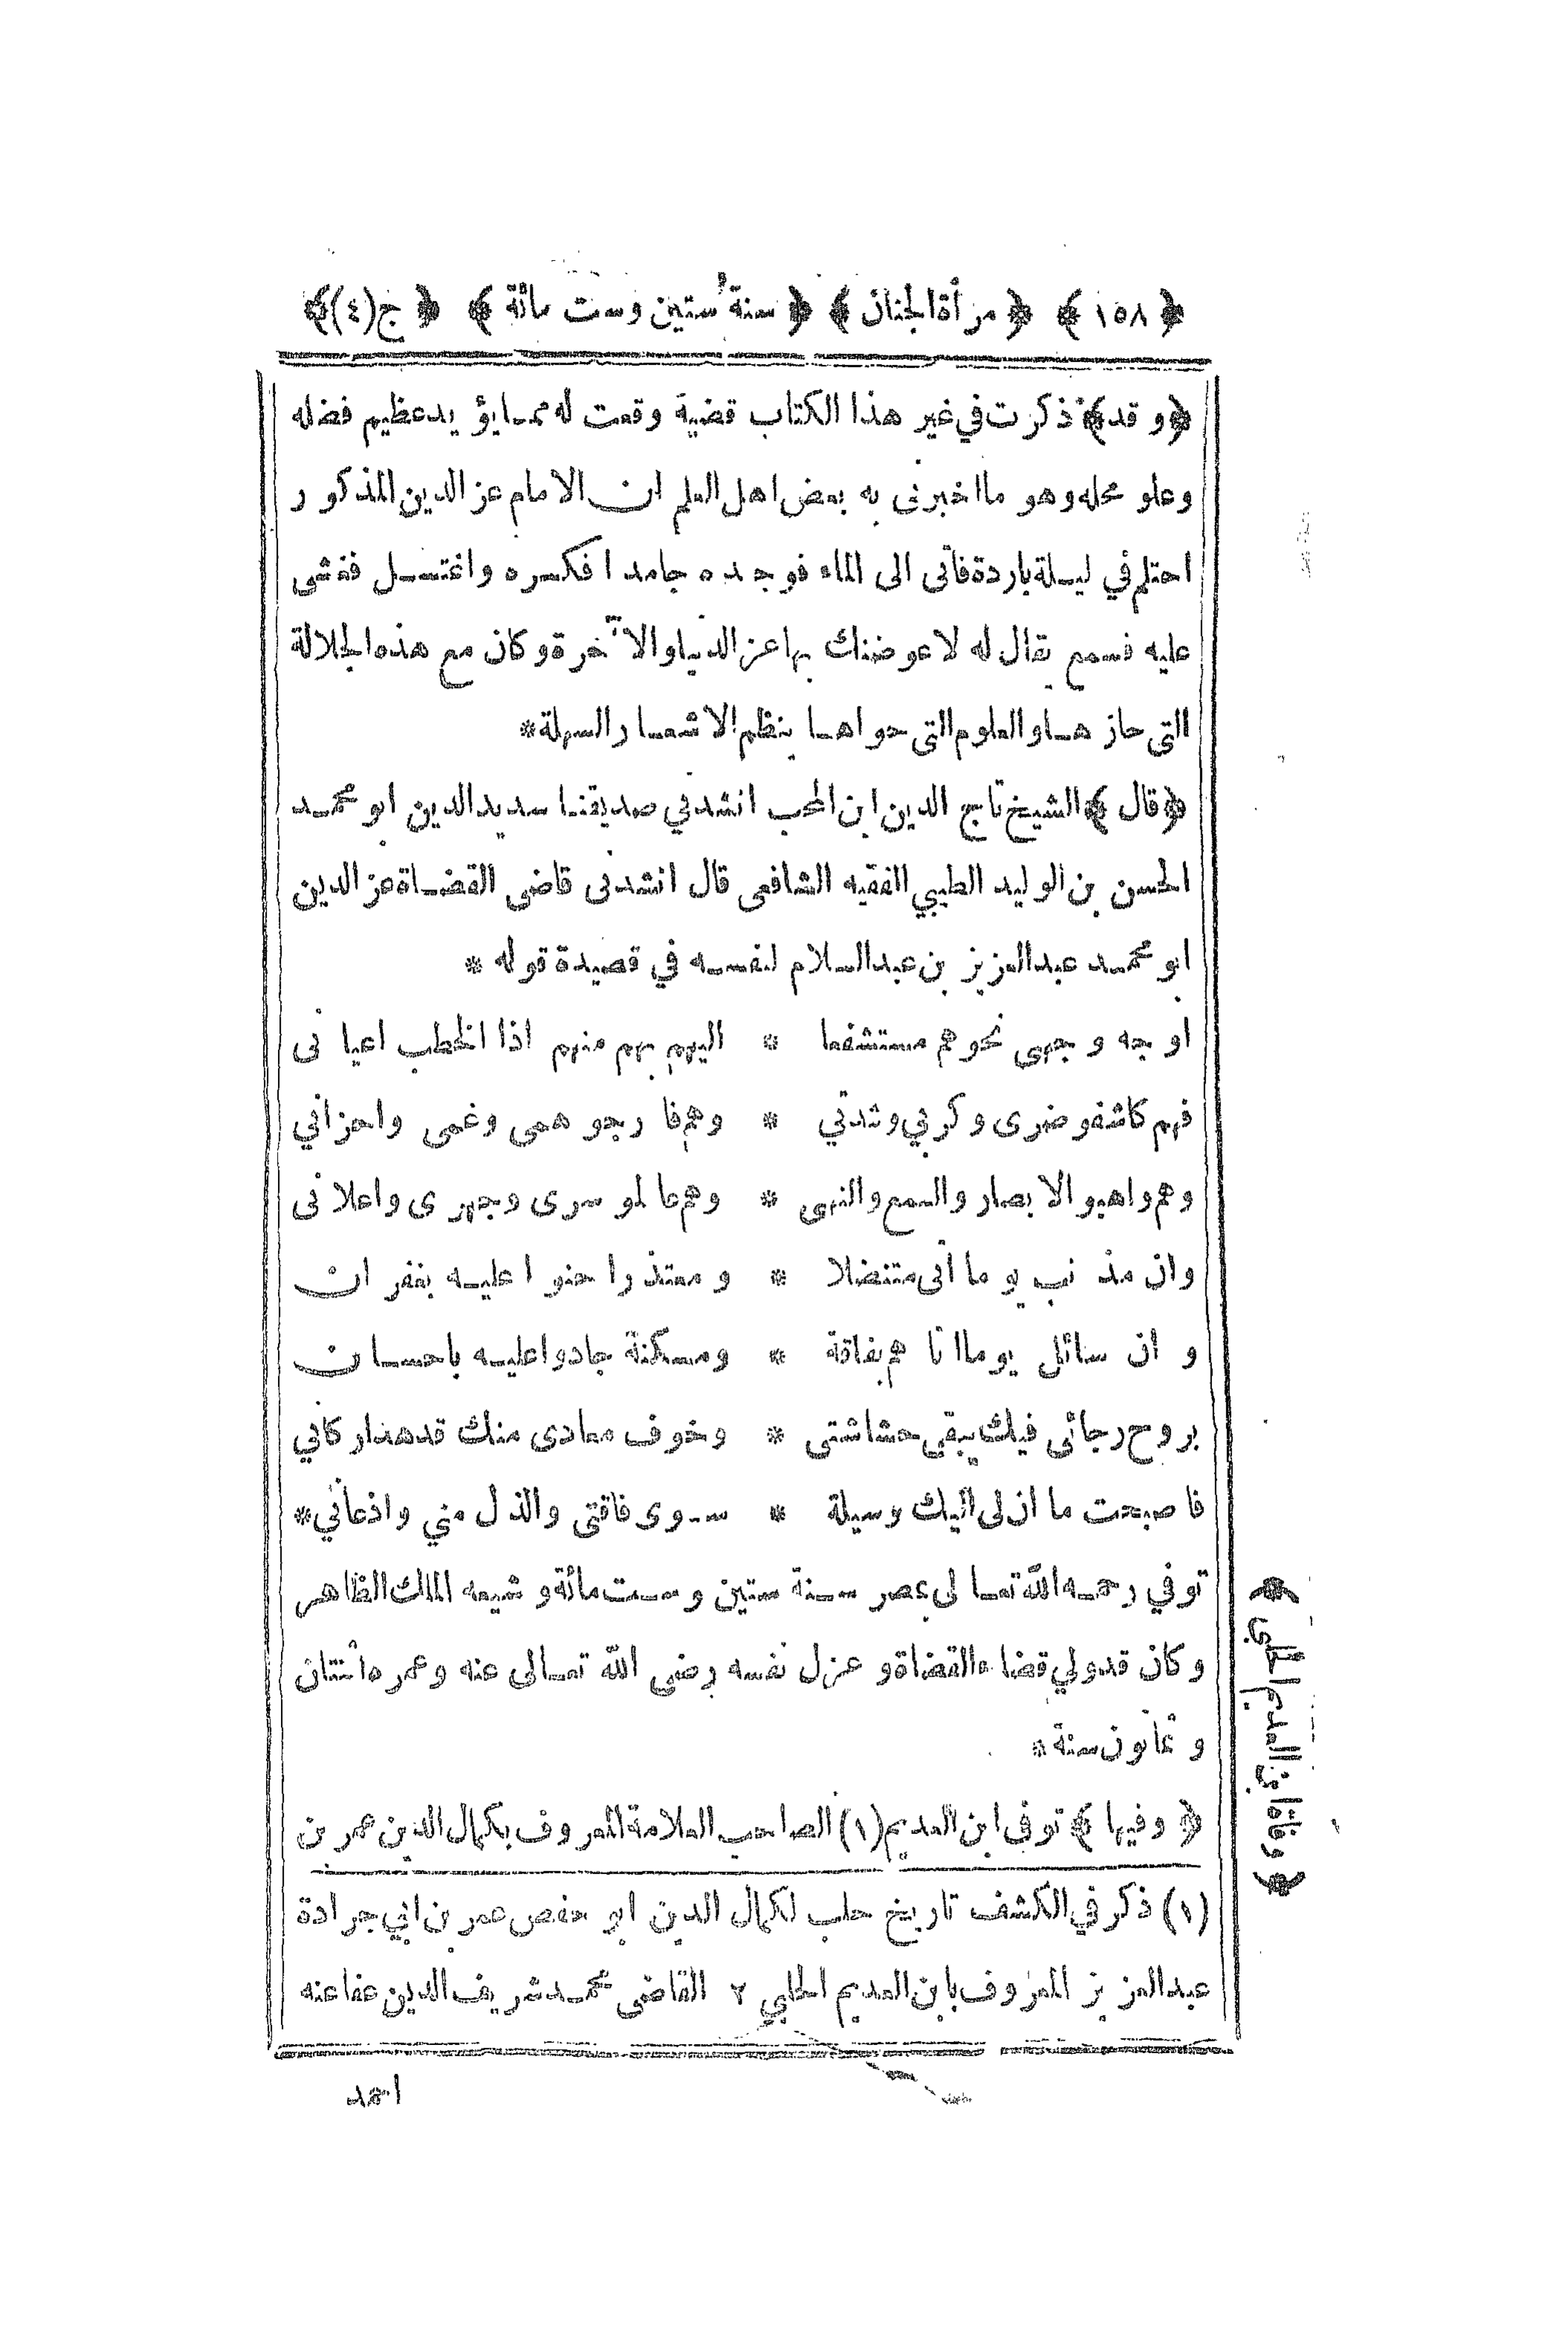 ﴿ ١٥٨ ﴾ ﴿ مرأة الجنان ﴾ ﴿ سنة ستين وست مائة ﴾ ﴿ ج (٤) ﴾
﴿ و قد ﴾ ذكرت في غير هذا الكتاب قضية وقعت له مما يؤيد عظيم فضله
وعلو محله وهو ما اخبرنى به بعض اهل العلم ان الامام عز الدين المذكور
احتلم في ليلة باردة فأتى الى الماء فوجده جامدا فكسره واغتسل فغشى
عليه فسمع يقال له لا عوضنك بها عز الدنيا والآخرة وكان مع هذه الجلالة
التى حازها والعلوم التى حواها ينظم الاشعار السهلة *
﴿ قال ﴾ الشيخ تاج الدين ابن المحب انشدني صديقنا سديد الدين ابو محمد
الحسن بن الوليد الطيبي الفقيه الشافعى قال انشدنى قاضى القضاة عز الدين
ابو محمد عبد العزيز بن عبد السلام لنفسه في قصيدة قوله *
اوجه وجهى نحوهم مستشفعا * اليهم بهم منهم اذا الخطب اعيانى
فهم كاشفو ضرى وكربي وشدتي * وهم فارجو همى وغمى واحزاني
وهم واهبو الابصار والسمع والنهى * وهم عالمو سرى وجهرى واعلانى
وان مذنب يوما أتى متنضلا * ومعتذرا حنوا عليه بغفران
و ان سائل يوما اتاهم بفاقة * ومسكنة جادوا عليه باحسان
بروح رجائى فيك يبقى حشاشتى * وخوف معادى منك قد هد اركاني
فاصبحت ما ان لى اليك وسيلة * سوى فاقتى والذل مني واذعاني *
توفي رحمه الله تعالى بمصر سنة ستين وست مائة وشيعه الملك الظاهر
وكان قد ولي قضاء القضاة وعزل نفسه رضى الله تعالى عنه وعمره اثنتان
و ثمانون سنة *
﴿ وفيها ﴾ توفى ابن العديم (١) الصاحب العلامة المعروف بكمال الدين عمر بن
(١) ذكر في الكشف تاريخ حلب لكمال الدين ابو حفص عمر بن ابي جرادة
عبد العزيز المعروف بابن العديم الحلبي ٢ القاضى محمد شريف الدين عفا عنه
احمد
﴿ وفاة ابن العديم الحلبي ﴾